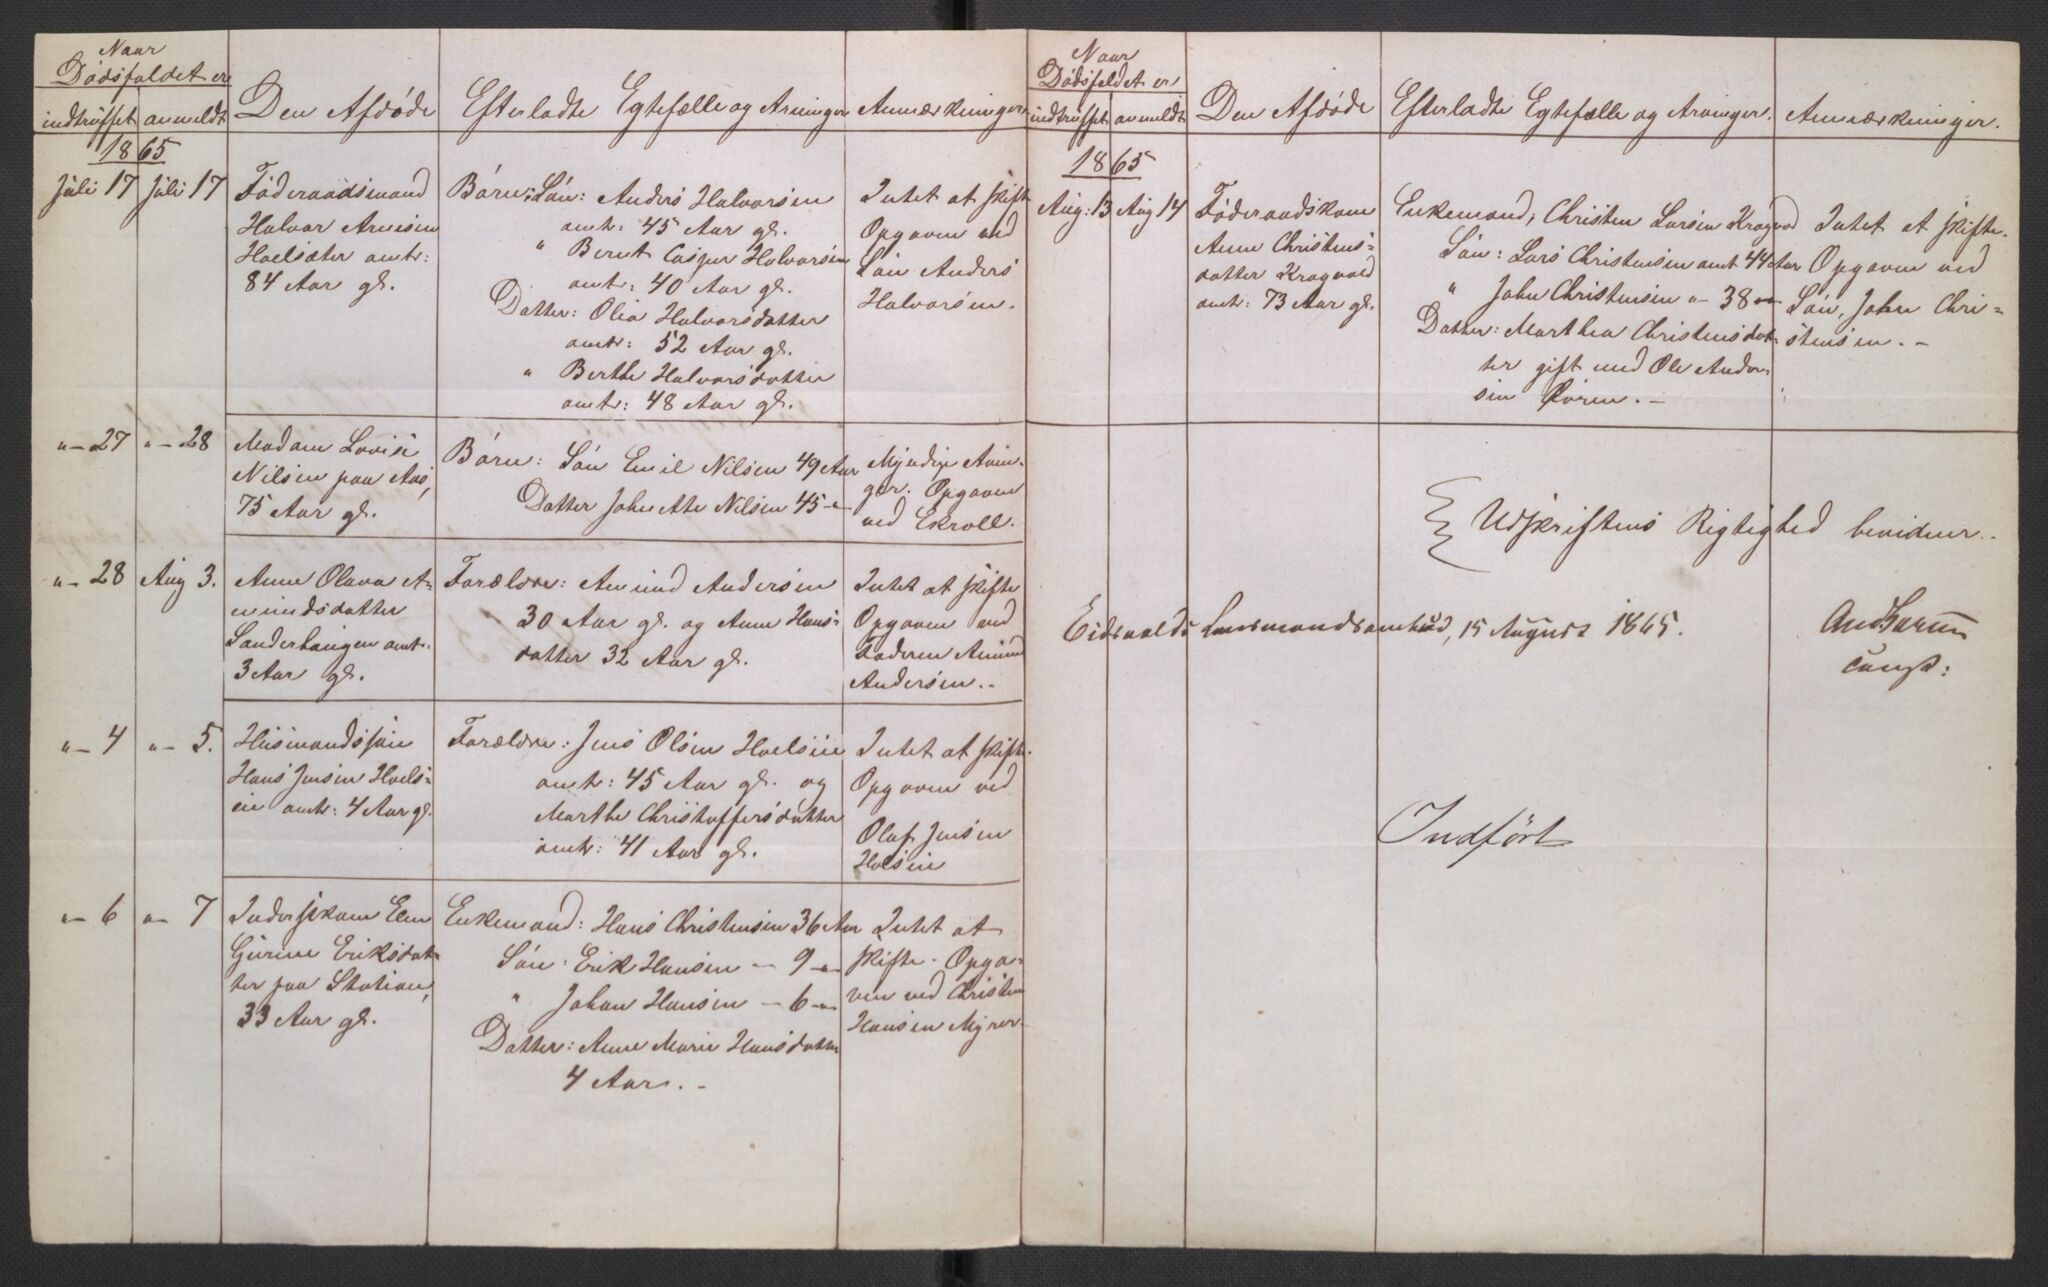 Naar
Dødsfaldet er
indtruffet
anmeldt
Den Afdøde
Efterladte Egtefælle og Arvinger
Anmærkninger
1865
Juli 17
Juli 17
Føderaadsmand
Halvor Arnesen
Hoelsæter omtr:
84 Aar gl.
Børn: Søn: Anders Halvorsen
omtr: 45 Aar gl.
" Bernt Casper Halvorsen
omtr: 40 Aar gl.
Datter: Olia Halvorsdatter
omtr: 52 Aar gl.
" Berthe Halvorsdatter
omtr: 48 Aar gl.
Intet at skifte
Opgaven ved
Søn Anders
Halvorsen.
"– 27
"– 28
Madam Lovise
Nilsen paa Aas,
75 Aar gl.
Børn: Søn Emil Nilsen 49 Aar
Datter Johnette Nilsen 45 –"–
Myndige Arvin-
ger. Opgaven
ved Ekroll.
"– 28
Aug 3.
Anne Olava A-
mundsdatter
Sanderhaugen omtr.
3 Aar gl.
Forældre: Amund Andersen
30 Aar gl. og Anne Hans-
datter 32 Aar gl.
Intet at skifte
Opgaven ved
Faderen Amund
Andersen. –
"– 4
"– 5.
Husmandssøn
Hans Jensen Hoels-
eie omtr: 4 Aar gl.
Forældre: Jens Olsen Hoelseie
omtr: 45 Aar gl. og
Marthe Christoffersdatter
omtr: 41 Aar gl.
Intet at skifte.
Opgaven ved
Oluf Jensen
Hoelseie
"– 6
"– 7
Inderstkone Elen
Gurine Eriksdat-
ter paa Station,
33 Aar gl.
Enkemand: Hans Christensen 36 Aar
Søn: Erik Hansen – 9 –"–
" Johan Hansen – 6 –"–
Datter: Anne Marie Hansdatter
4 Aar. –
Intet at
skifte. Opga-
ven ved Christen
Hansen Myrer
Naar
Dødsfaldet er
indtruffet
anmeldt
Den Afdøde
Efterladte Egtefælle og Arvinger.
Anmærkninger.
1865
Aug: 13
Aug 14
Føderaadskone
Anne Christens-
datter Kragvold
omtr: 73 Aar gl.
Enkemand; Christen Larsen Kragvold
Søn: Lars Christensen omt 44 Aar
" John Christensen –"– 38 –"–
Datter: Marthea Christensdat-
ter gift med Ole Ander-
sen Øvren. –
Intet at skifte.
Opgaven ved
Søn, John Chri-
stensen. –
Udskriftens Rigtighed bevidner.
Eidsvolds Lensmandsombud, 15 August 1865.
const:
Indført